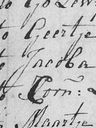 to Geertje
to Jacoba
to Corn:
Maartje